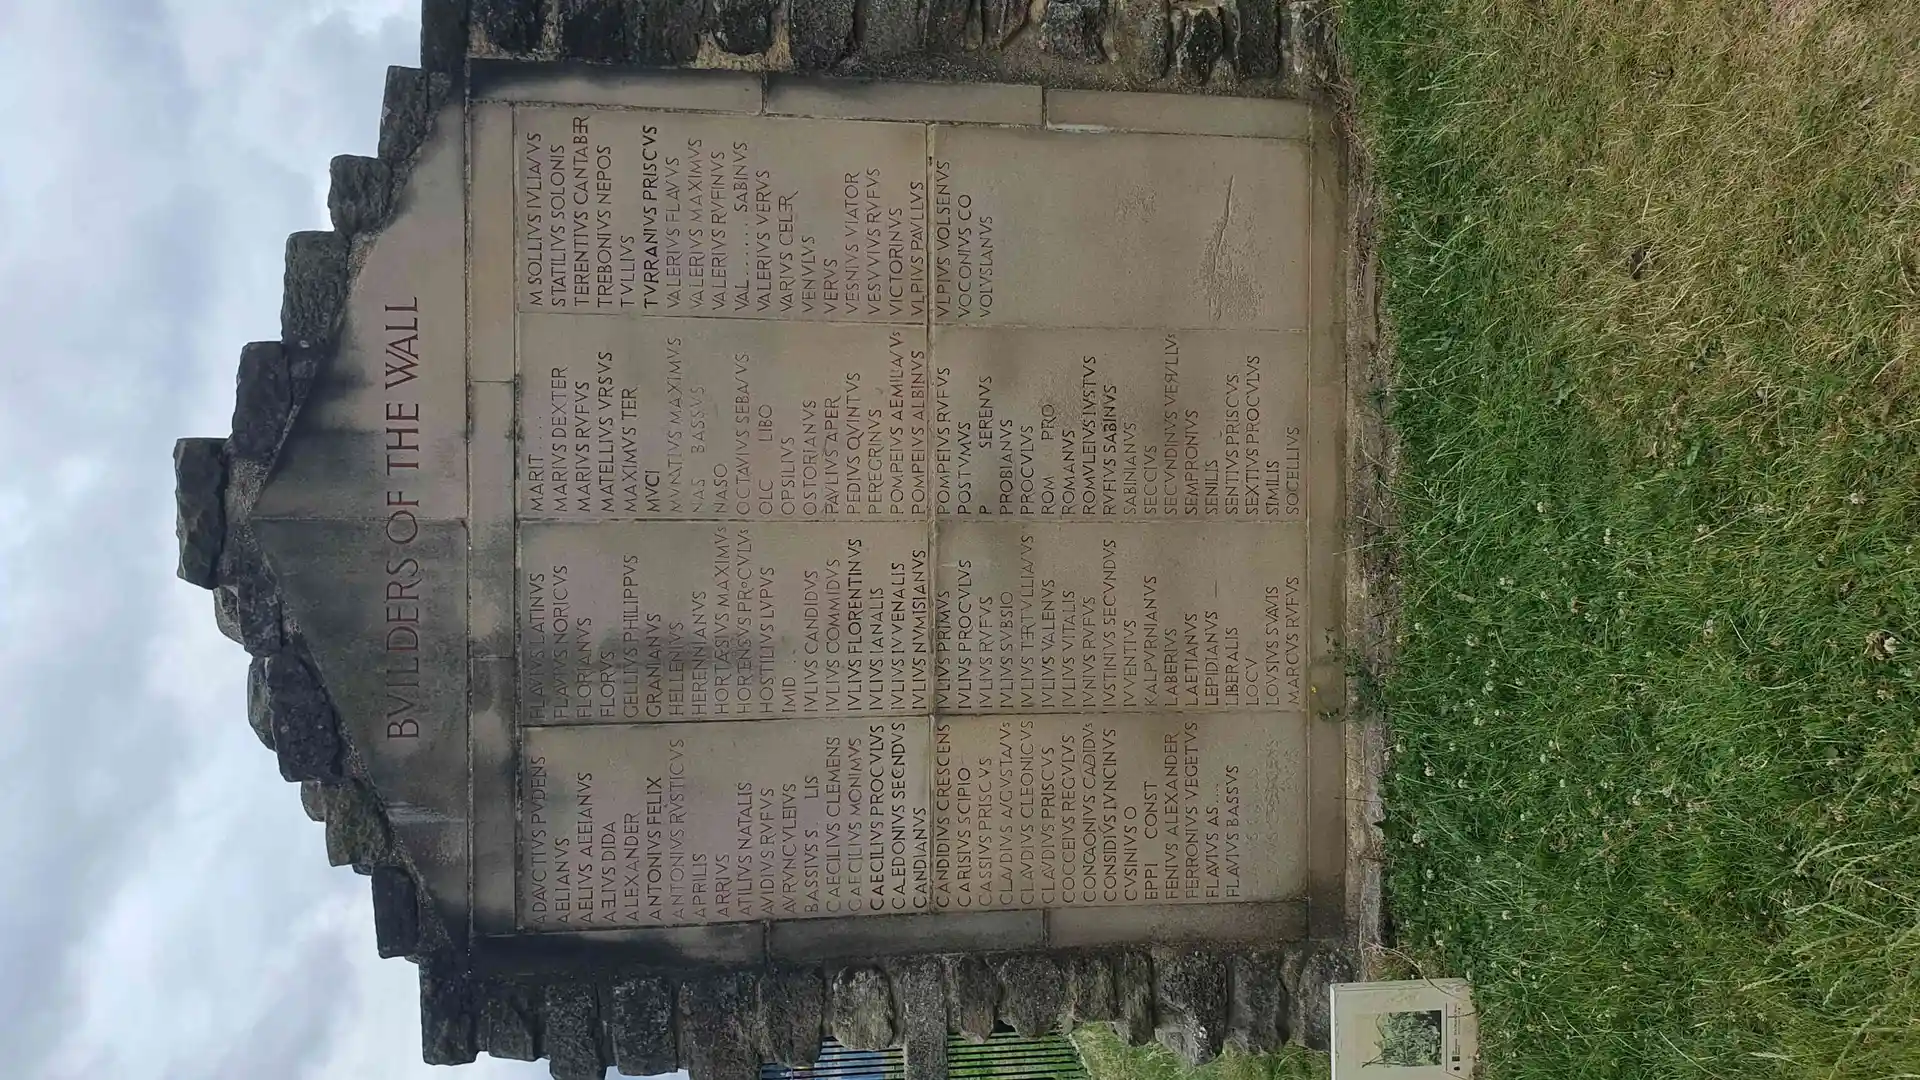 BVILDERS OF THE WALL
ADAVCTIVS PVDENS
AELIANVS
AELIVS AEEIANVS
AELIVS DIDA
ALEXANDER
ANTONIVS FELIX
ANTONIVS RVSTICVS
APRILIS
ARRIVS
ATILIVS NATALIS
AVIDIVS RVFVS
AVRVNCVLEIVS
BASSIVS S LIS
CAECILIVS CLEMENS
CAECILIVS MONIMVS
CAECILIVS PROCVLVS
CALEDONIVS SECNDVS
CANDIANVS
CANDIDIVS CRESCENS
CARISIVS SCIPIO
CASSIVS PRISCVS
CLAVDIVS AVGVSTANVS
CLAVDIVS CLEONICVS
CLAVDIVS PRISCVS
COCCEIVS REGVLVS
CONCAONIVS CADIDVS
CONSIDIVS LVNCINVS
CVSINIVS O
EPPI CONST
FENIVS ALEXANDER
FERRONIVS VEGETVS
FLAVIVS AS...
FLAVIVS BASSVS
FLAVIVS LATINVS
FLAVIVS NORICVS
FLORIANVS
FLORVS
GELLIVS PHILIPPVS
GRANIANVS
HELLENIVS
HERENNIANVS
HORTÆSIVS MAXIMVS
HORENSVS PROCVLVS
HOSTILIVS LVPVS
IMID
IVLIVS CANDIDVS
IVLIVS COMMIDVS
IVLIVS FLORENTINVS
IVLIVS IANALIS
IVLIVS IVVENALIS
IVLIVS NVMISIANVS
IVLIVS PRIMVS
IVLIVS PROCVLVS
IVLIVS RVFVS
IVLIVS SVBSIO
IVLIVS TERTVLLIANVS
IVLIVS VALENVS
IVLIVS VITALIS
IVNIVS RVFVS
IVSTINIVS SECVNDVS
IVVENTIVS
KALPVRNIANVS
LABERIVS
LAETIANVS
LEPIDIANVS
LIBERALIS
LOCV
LOVSIVS SVAVIS
MARCVS RVFVS
MARIT.....
MARIVS DEXTER
MARIVS RVFVS
MATELLIVS VRSVS
MAXIMVS TER
MVCI
MVNATIVS MAXIMVS
NAS BASSVS
NASO
OCTAVIVS SEBANVS
OLC LIBO
OPSILIVS
OSTORIANVS
PAVLIVS APER
PEDIVS QVINTVS
PEREGRINVS
POMPEIVS AEMILANVS
POMPEIVS ALBINVS
POMPEIVS RVFVS
POSTVMVS
P SERENVS
PROBIANVS
PROCVLVS
ROM PRO
ROMANVS
ROMVLEIVS IVSTVS
RVFIVS SABINVS
SABINIANVS
SECCIVS
SECVNDINVS VERVLLVS
SEMPRONIVS
SENILIS
SENTIVS PRISCVS
SEXTIVS PROCVLVS
SIMILIS
SOCELLIVS
M SOLLIVS IVLIANVS
STATILIVS SOLONIS
TERENTIVS CANTABER
TREBONIVS NEPOS
TVLLIVS
TVRRANIVS PRISCVS
VALERIVS FLAVVS
VALERIVS MAXIMVS
VALERIVS RVFINVS
VAL........ SABINVS
VALERIVS VERVS
VARIVS CELER
VENVLVS
VERVS
VESNIVS VIATOR
VESVVIVS RVFVS
VICTORINVS
VLPIVS PAVLLVS
VLPIVS VOLSENVS
VOCONIVS CO
VOLVSIANVS